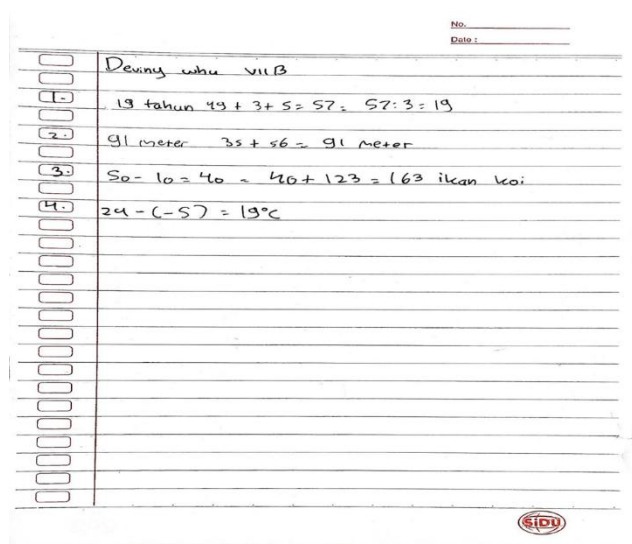 No.
Date :
Deviny whu VII B
1. 19 tahun 49 + 3 + 5 = 57 = 57 : 3 = 19
2. 91 meter 35 + 56 = 91 meter
3. 50 - 10 = 40 = 40 + 123 = 163 ikan koi
4. 24 - (-5) = 19°C
SiDU